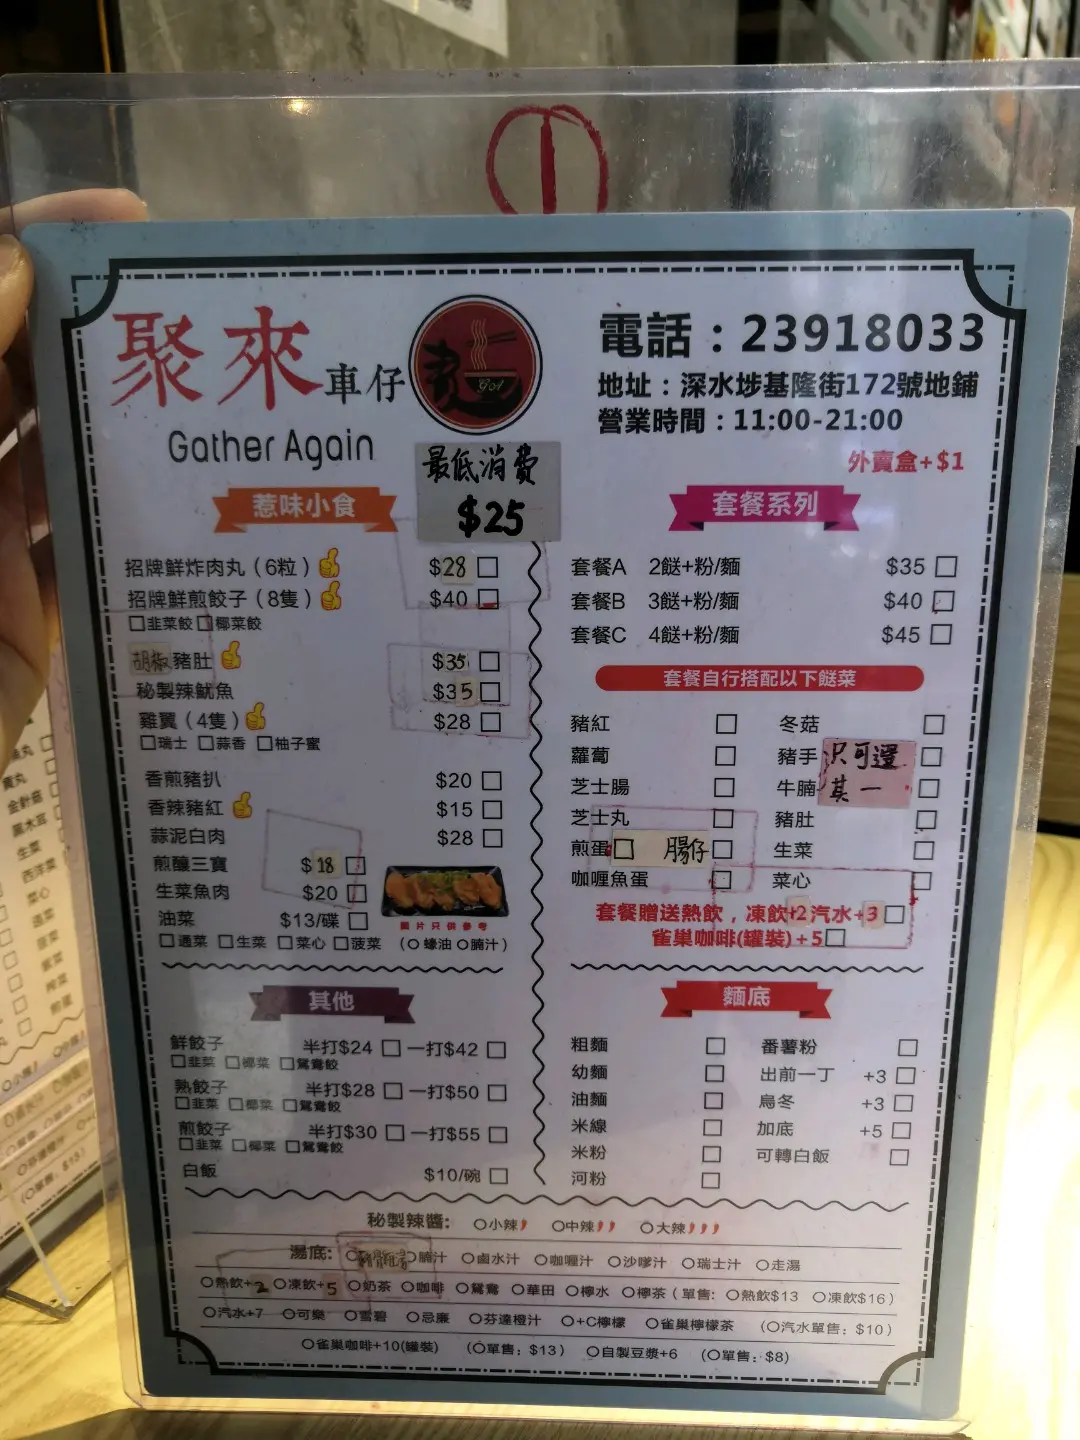 聚來車仔
Gather Again
電話：23918033
地址：深水埗基隆街172號地鋪
營業時間：11:00-21:00
外賣盒+$1
最低消費
$25
惹味小食
招牌鮮炸肉丸（6粒） $28
招牌鮮煎餃子（8隻） $40
韭菜餃 椰菜餃
胡椒豬肚 $35
秘製辣魷魚 $35
雞翼（4隻） $28
瑞士 蒜香 柚子蜜
香煎豬扒 $20
香辣豬紅 $15
蒜泥白肉 $28
煎釀三寶 $18
生菜魚肉 $20
油菜 $13/碟
通菜 生菜 菜心 菠菜 （蠔油 腩汁）
圖片只供參考
套餐系列
套餐A 2餸+粉/麵 $35
套餐B 3餸+粉/麵 $40
套餐C 4餸+粉/麵 $45
套餐自行搭配以下餸菜
豬紅 冬菇
蘿蔔 豬手
芝士腸 牛腩
只可選
其一
芝士丸 豬肚
煎蛋 腸仔 生菜
咖喱魚蛋 菜心
套餐贈送熱飲，凍飲+2 汽水+3
雀巢咖啡(罐裝)+5
其他
鮮餃子 半打$24 一打$42
韭菜 椰菜 鴛鴦餃
熟餃子 半打$28 一打$50
韭菜 椰菜 鴛鴦餃
煎餃子 半打$30 一打$55
韭菜 椰菜 鴛鴦餃
白飯 $10/碗
麵底
粗麵 番薯粉
幼麵 出前一丁 +3
油麵 烏冬 +3
米線 加底 +5
米粉 可轉白飯
河粉
秘製辣醬: 小辣 中辣 大辣
湯底: 腩汁 鹵水汁 咖喱汁 沙嗲汁 瑞士汁 走湯
熱飲+2 凍飲+5 奶茶 咖啡 鴛鴦 華田 檸水 檸茶（單售: 熱飲$13 凍飲$16）
汽水+7 可樂 雪碧 忌廉 芬達橙汁 +C檸檬 雀巢檸檬茶 （汽水單售: $10）
雀巢咖啡+10(罐裝) （單售: $13） 自製豆漿+6 （單售: $8）
丸
金針菇
黑木耳
生菜
西洋菜
菜心